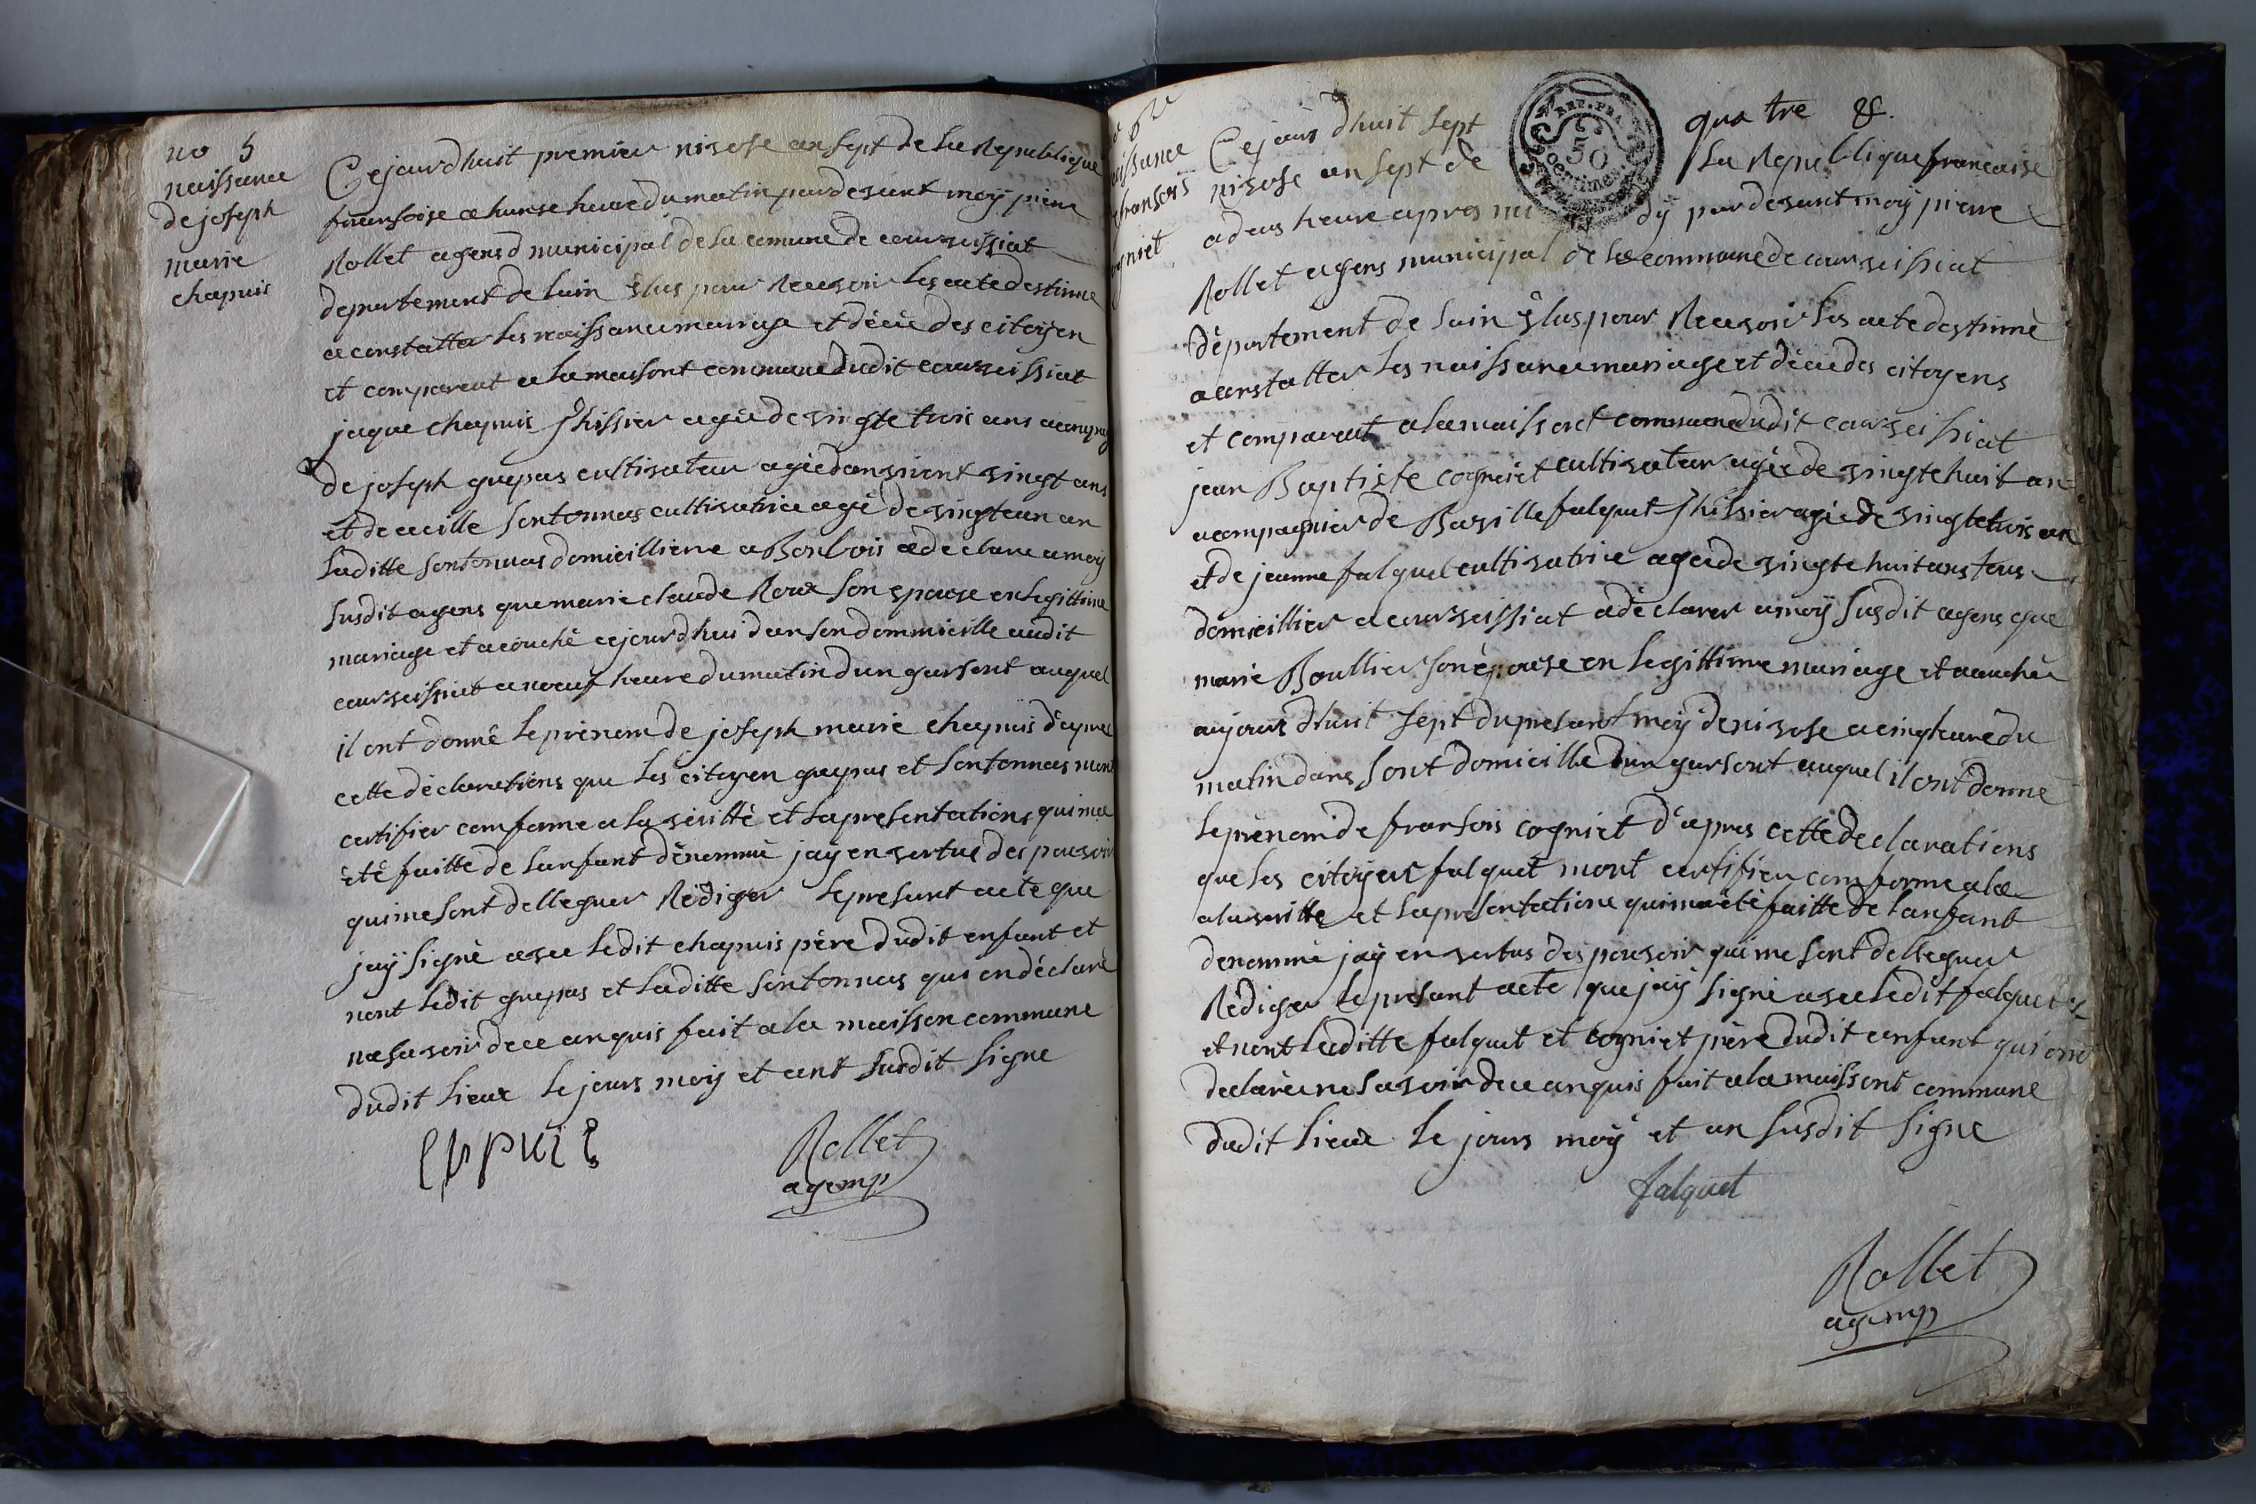 no 5
naissance
de joseph
marie
chapuis
Cejourdhuit premier nivose an sept de La Republique
fransoise a honse heure du matin pardevant moÿ pierre
Rollet agens d municipal de La comune de coursissiat
departement de Lain Elus pour Recevoir Les acte destinne
a constatter Les naissance marriage et décè des citoÿen
et comparent a La maisont commune dudit courseissiat
jaque chapuis thissier agée de vingte trois ans acompag
de joseph grepas cultivateur agée danviront vingt ans
et de cecille Sontonnas cultivatrice agé de vingteun an
Laditte Sontonnas domicilliere a Bonbois a declare a moy
Susdit agens que marie claude Roux Son epouse en Legittime
mariage et acouché cejourdhui dan Son dommicille audit
courseissiat a noeuf heure du matin dun garsont auquel
il ont donné Le prénom de joseph marie chapuis d'apres
cette déclarations que Les citoyen grepas et Sontonnas mont
certifier comforme a La verittè et La presentations qui ma
été faitte de Lanfant dénommé jay en vertue des pouvoir
qui me Sont delleguer Rédiger Le present acte que
jaÿ Signé avec Ledit chapuis père dudit enfant et
nont Ledit grepas et Laditte Sontonnas qui on déclaré
ne Savoir de ce anquis fait a La maisson commune
dudit Lieux Le jours moÿ et ant Susdit Signe
Rollet
agemp
quatre &.
REP. FRA.
50
centimes
naissance
fransois
cogniet
Cejours dhuit Sept
nivose an Sept de La Republique francaise
a deus heure apres midÿ pardevant moÿ pierre
Rollet agens municipal de La commune de courseissiat
département de Lain Elus pour Recevoir Les acte destinné
a constatter Les naissance mariage et décè des citoyens
et comparent a La maissont commune dudit courseissiat
jean Baptiste cogniet cultivateur agée de vingte huit an
acompagnier de Basille falquet thissier agée de vingte trois an
et de jeanne falquet cultivatrice agée de vingte huit ans tous
domicillier a courseissiat a déclarer a moÿ Susdit agens que
marie Boullier Son épouse en Legittime mariage et acouchée
aujours dhuit Sept du presant moÿ de nivose a cinq heure du
matin dans Sont domicille dun garsont auquel il ont donné
Le prénom de fransois cogniet d'apres cette declarations
que Les citoyens falquet mont certifier comforme a La
a La veritte et La presentations qui ma été faitte de Lanfant
denommé jaÿ en vertus des pouvoir qui me Sont delleguer
Rédiger Le presant acte que jaÿ Signé avec Ledit falquet
et nont Laditte falquet et cogniet père dudit enfant qui ont
declarée ne Savoir de ce anquis fait a La maissont commune
dudit Lieux Le jours moÿ et an Susdit Signe
falquet
Rollet
agemp